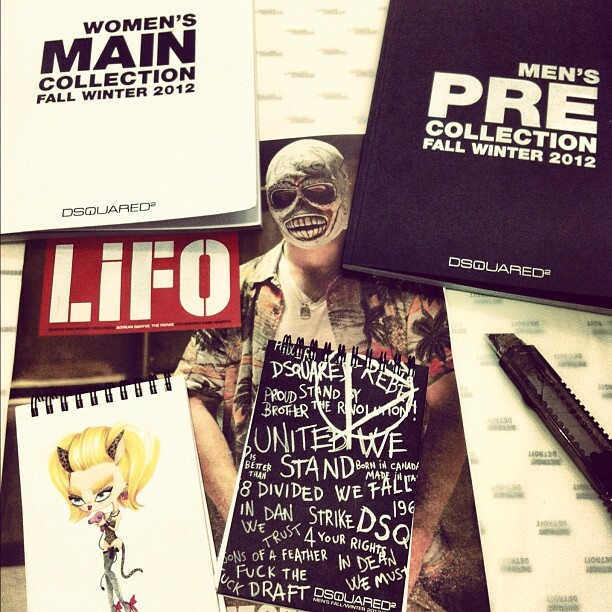 WOMEN'S
MAIN
COLLECTION
FALL WINTER 2012
DSQUARED²
MEN'S
PRE
COLLECTION
FALL WINTER 2012
DSQUARED²
LiFO
DSQUARE
REBE
PROUD STAND BY
BROTHER THE REVOLUTION!
UNITED WE
2 IS
BETTER
THAN
STAND
BORN IN CANADA
MADE IN ITA
8 DIVIDED WE FALL
IN DAN STRIKE DSQ
196
WE TRUST 4 YOUR RIGHTS
SONS OF A FEATHER IN DEAN
FUCK THE WE MUST
UCK DRAFT
DSQUARED²
MEN'S FALL/WINTER 2012
DETROIT
DETROIT
DETROIT